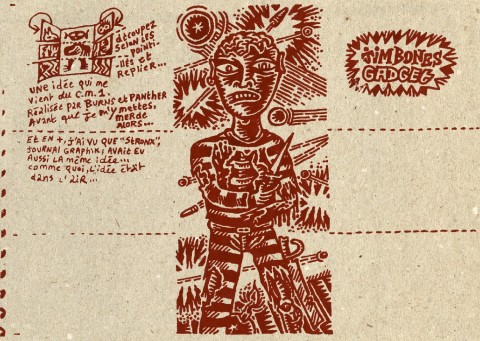 découpez
selon les
pointi-
-llés et
Replier...
UNE idée qui me
vient du C.M.1.
Réalisée PAR BURNS et PANTHER
Avant que je m'y mettes,
merde
ALORS...
ET EN +, j'Ai VU QUE "STRONX",
JOURNAL GRAPHIK, AVAIT EU
AUSSI LA même idée...
comme quoi, l'idée était
dans l'AIR...
JIMBONES
GADGET